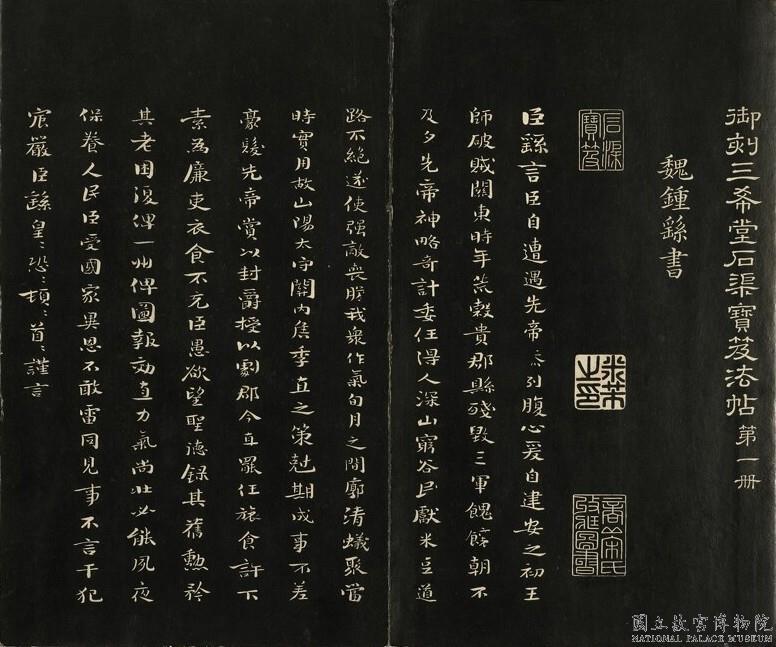 御刻三希堂石渠寶笈法帖 第一冊
魏鍾繇書
石渠寶笈
臣繇言臣自遭遇先帝忝列腹心爰自建安之初王
師破賊關東時年荒穀貴郡縣殘毀三軍餽饟朝不
及夕先帝神略奇計委任得人深山窮谷民獻米豆道
路不絕遂使強敵喪膽我眾作氣旬月之間廓清蟻聚當
時實用故山陽太守關內侯季直之策剋期成事不差
豪髮先帝賞以封爵授以劇郡今直罷任旅食許下
素為廉吏衣食不充臣愚欲望聖德錄其舊勳矜
其老困復俾一州俾圖報效直力氣尚壯必能夙夜
保養人民臣受國家異恩不敢雷同見事不言干犯
宸嚴臣繇皇〻恐〻頓〻首〻謹言
國立故宮博物院
NATIONAL PALACE MUSEUM